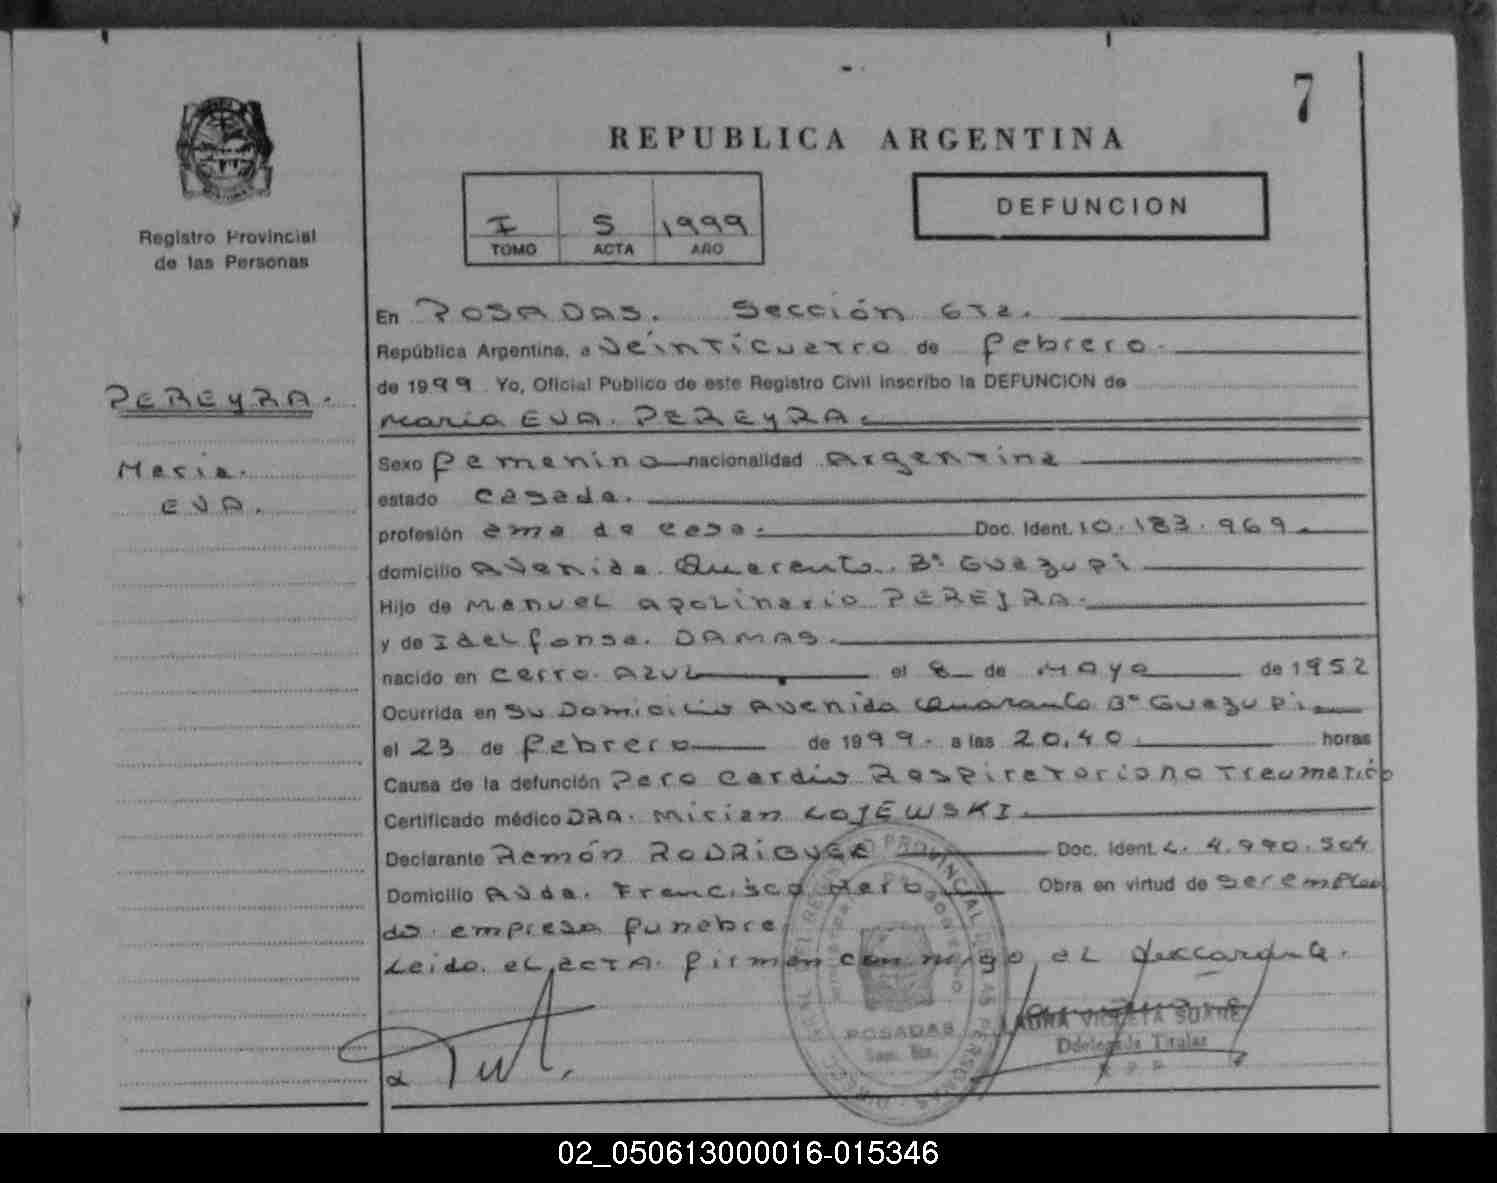 7
REPUBLICA ARGENTINA
I 5 1999
TOMO ACTA AÑO
DEFUNCION
Registro Provincial
de las Personas
PEREYRA.
Maria.
EVA.
En POSADAS. Sección 6ta.
República Argentina, a Veinticuatro de febrero.
de 1999. Yo, Oficial Público de este Registro Civil inscribo la DEFUNCION de
Maria EVA. PEREYRA.
Sexo femenino nacionalidad Argentina
estado casada.
profesión ama de casa. Doc. Ident. 10.183.969.
domicilio Avenida Quarenta. Bº Guazupi
Hijo de Manuel Apolinario PEREJRA.
y de Idelfonsa. DAMAS.
nacido en Cerro. AZUL el 8 de Mayo de 1952
Ocurrida en su Domicilio Avenida Quaranta Bº Guazupi
el 23 de febrero de 1999. a las 20.40 horas
Causa de la defunción Paro Cardio Respiratorio no Traumatico
Certificado médico DRA. Mirian LOJEWSKI.
Declarante Ramón RODRIGUEZ Doc. Ident. L. 4.990.504
Domicilio Avda. Francisco Haro Obra en virtud de ser emplea
do. empresa funebre
Leido. el acta. firman conmigo, el declarante.
LAURA VIOLETA SUAREZ
Delegada Titular
R P P
POSADAS
02_050613000016-015346